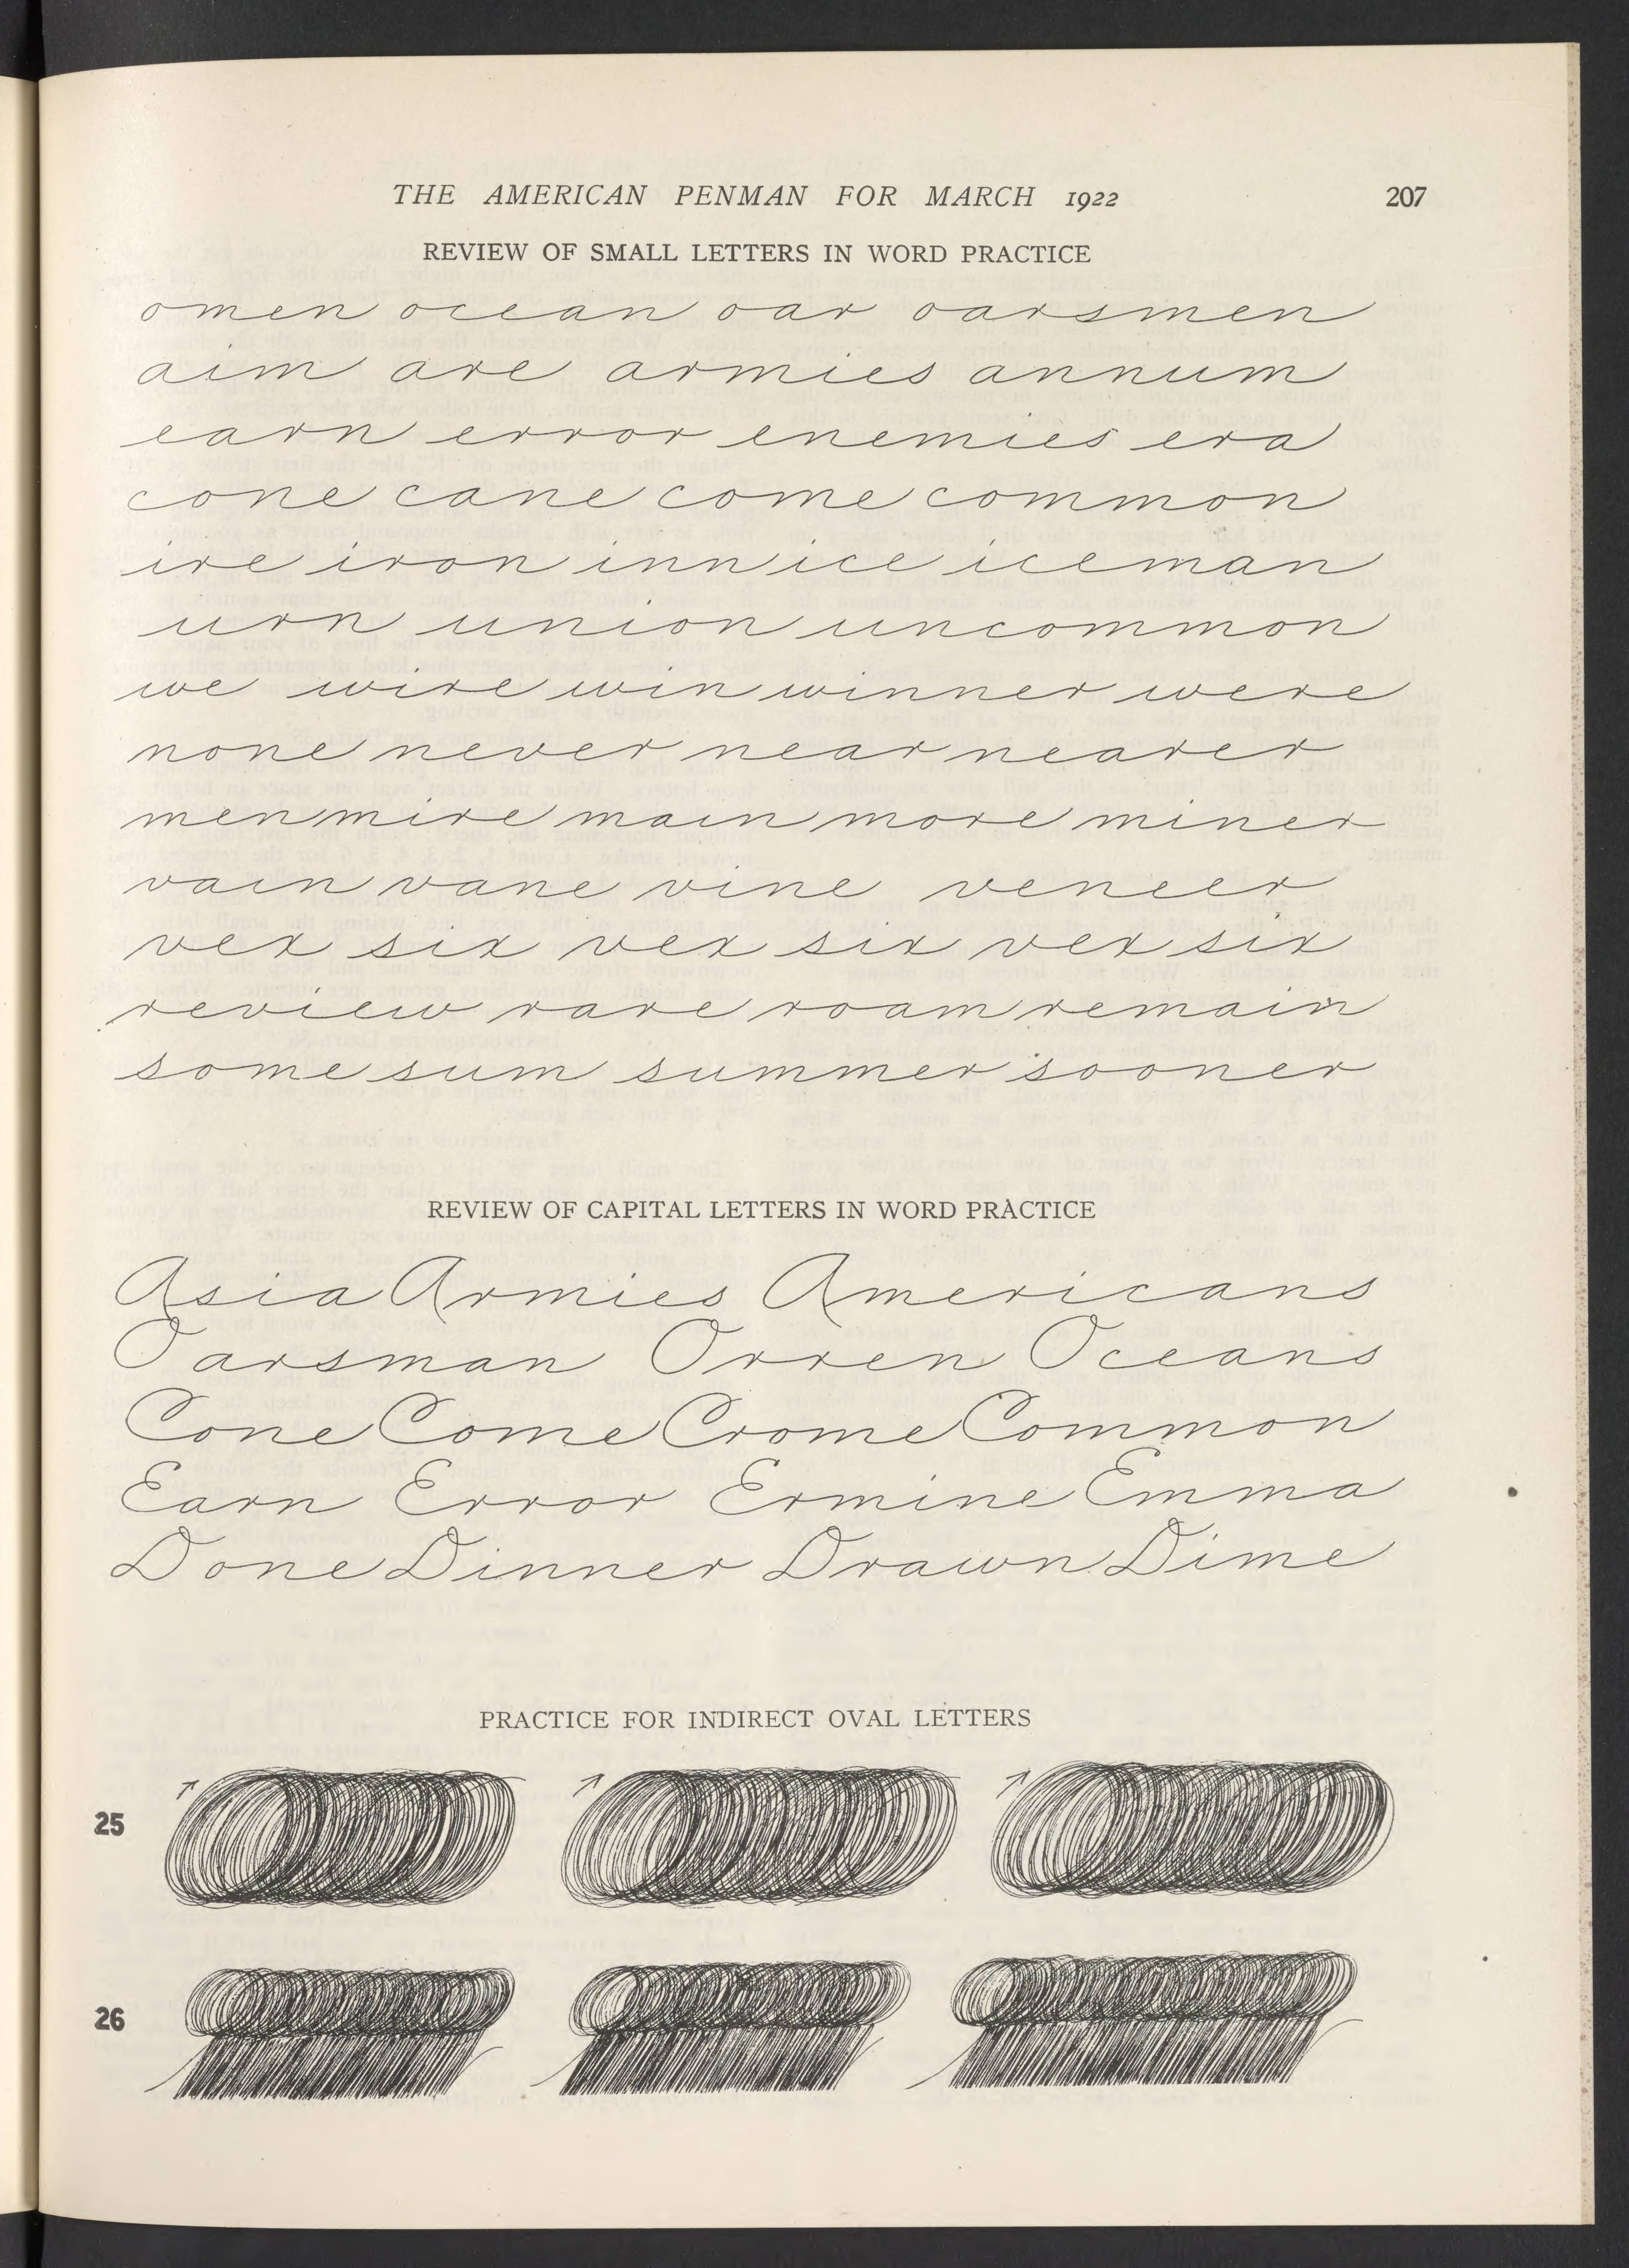 THE AMERICAN PENMAN FOR MARCH 1922 207
REVIEW OF SMALL LETTERS IN WORD PRACTICE
omen ocean oar oarsmen
aim are armies annum
earn error enemies era
cone cane come common
ire iron inn ice iceman
urn union uncommon
we wire win winner were
none never near nearer
men mire main more miner
vain vane vine veneer
vex six vex six vex six
review rare roam remain
some sum summer sooner
REVIEW OF CAPITAL LETTERS IN WORD PRACTICE
Asia Armies Americans
Oarsman Orren Oceans
Cone Come Crome Common
Earn Error Ermine Emma
Done Dinner Drawn Dime
PRACTICE FOR INDIRECT OVAL LETTERS
25
26